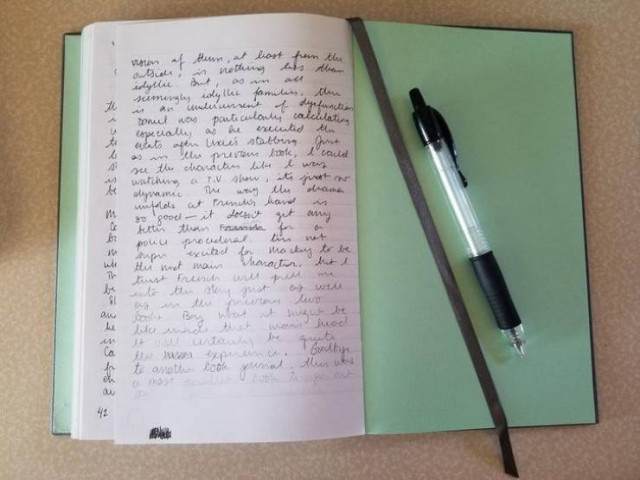 vision of them, at least from the
outside, is nothing less than
idyllic. But, as in all
seemingly idyllic families, there
is an undercurrent of dysfunction
was particularly calculating
especially as he executed the
events after Lexie's stabbing. Just
as in the previous book, I could
see the characters like I was
watching a T.V show, its just so
dynamic. The way the drama
unfolds at French's hand is
so good — it doesn't get any
better than for a
police procedural. I'm not
super excited for Mackey to be
the next main character, but I
trust French will pull me
into the story just as well
as in the previous two
books. Boy what it might be
like inside that man's head
It will certainly be quite
the experience. Goodbye
to another book journal. This was
a most excellent book to
on
42